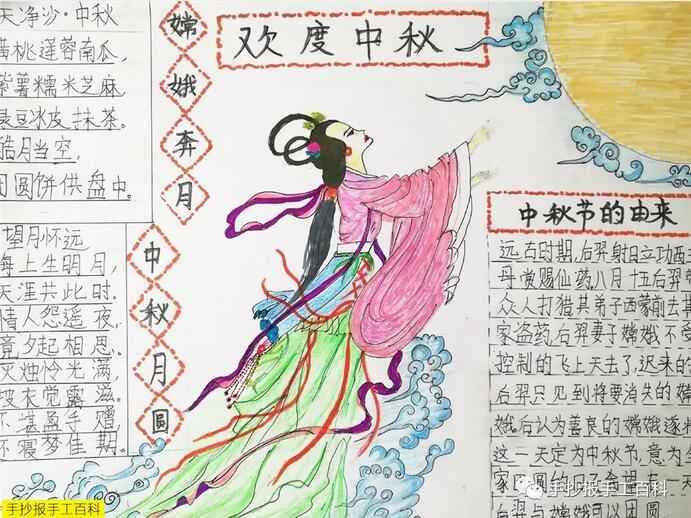 天净沙·中秋
黄桃莲蓉南瓜,
紫薯糯米芝麻
豆冰皮抹茶。
皓月当空,
团圆饼供盘中。
望月怀远
海上生明月,
天涯共此时。
情人怨遥夜,
竟夕起相思。
灭烛怜光满,
披衣觉露滋。
不堪盈手赠,
还寝梦佳期。
嫦娥奔月
中秋月圆
欢度中秋
中秋节的由来
远古时期,后羿射日立功西王
丹赏赐仙药,八月十五后羿
众人打猎其弟子西蒙前去其
家盗药,后羿妻子嫦娥不受
控制的飞上天去了,迟来的
后羿只见到将要消失的嫦
娥。后认为善良的嫦娥逐将
这一天定为中秋节,意为全
家团圆的日子希望有一天
后羿与嫦娥可以团圆
手抄报手工百科
手抄报手工百科